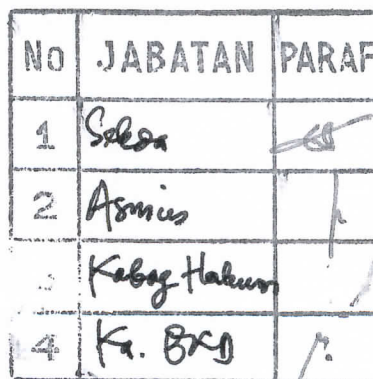 No JABATAN PARAF
1 Sekda
2 Asmius
Kabag Hukum
4 Ka. BKD